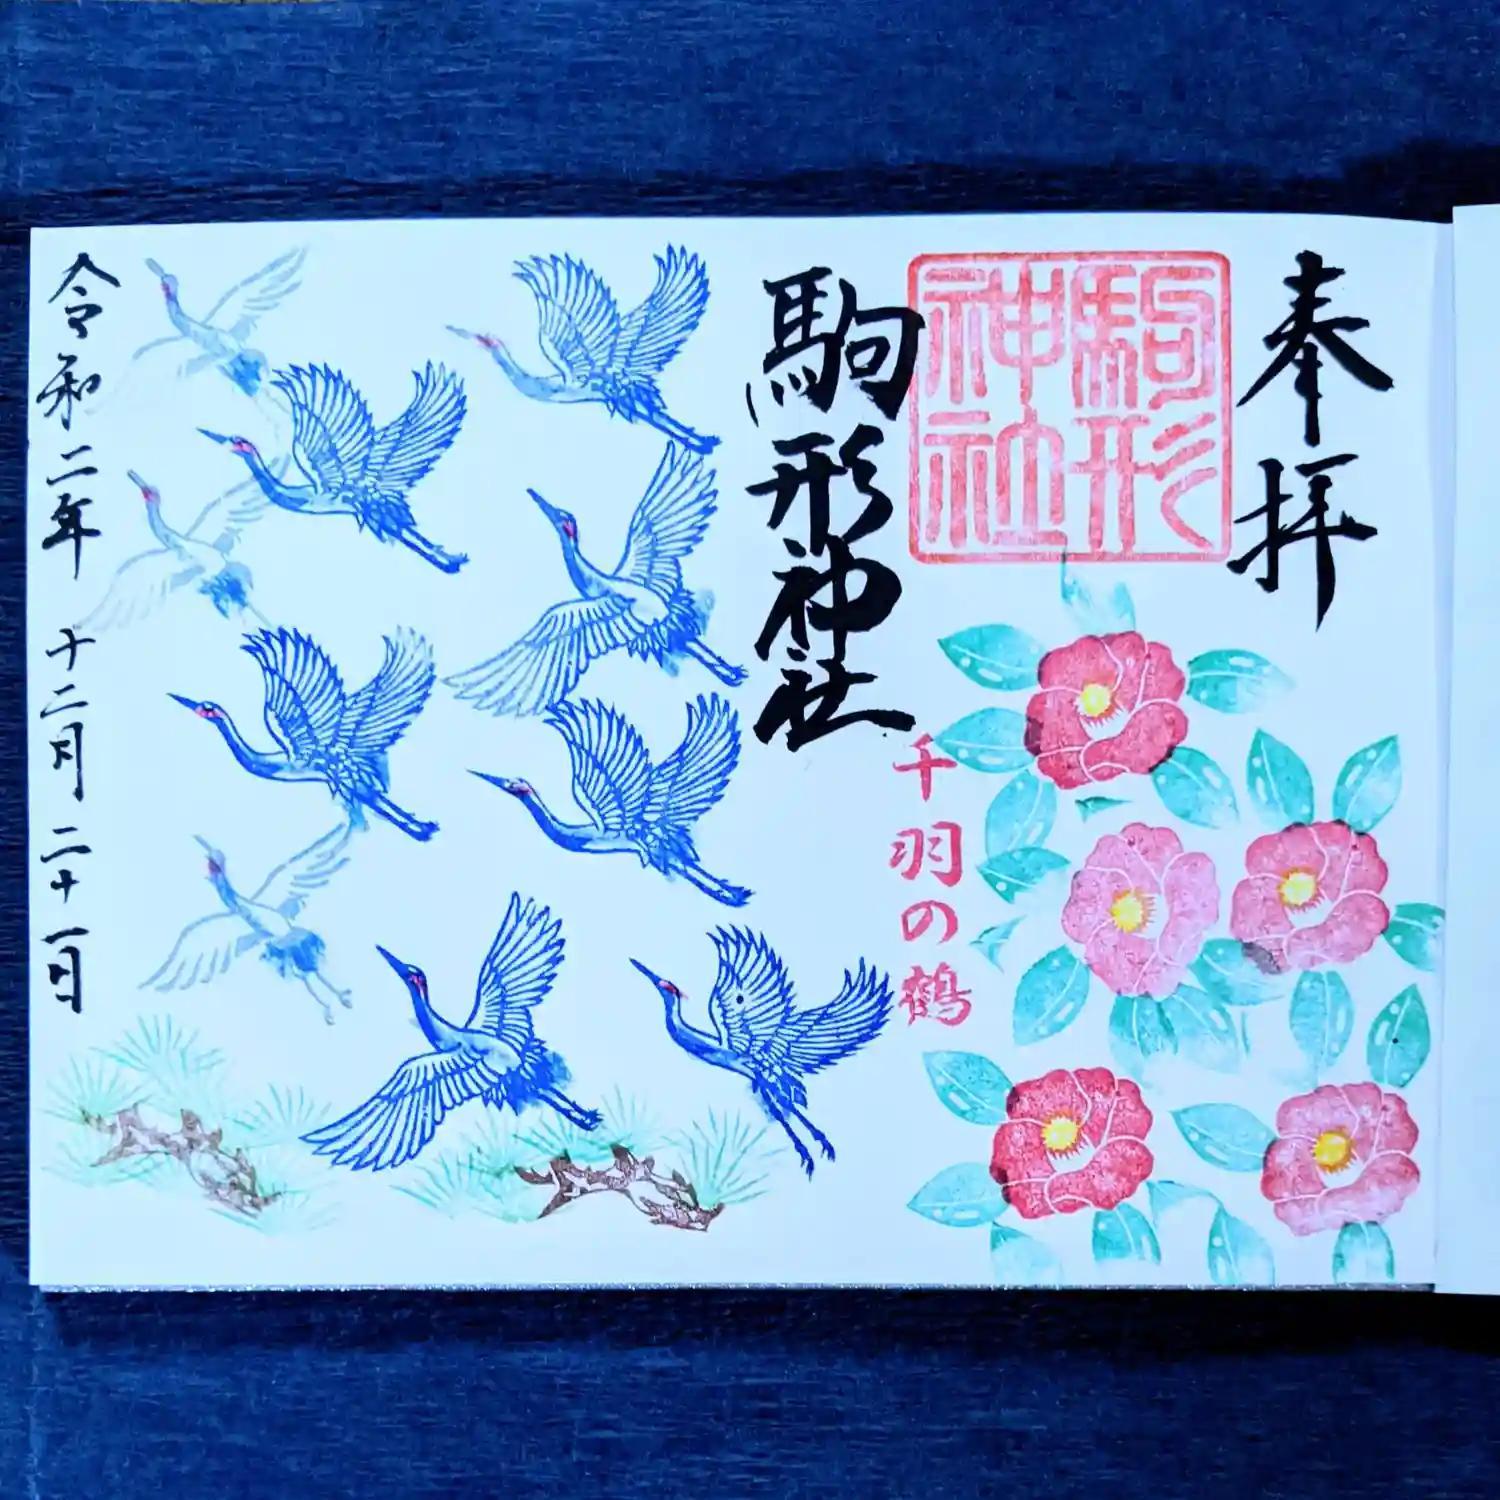 奉拝
駒形
神社
駒形神社
千羽の鶴
令和二年 十二月 二十一日